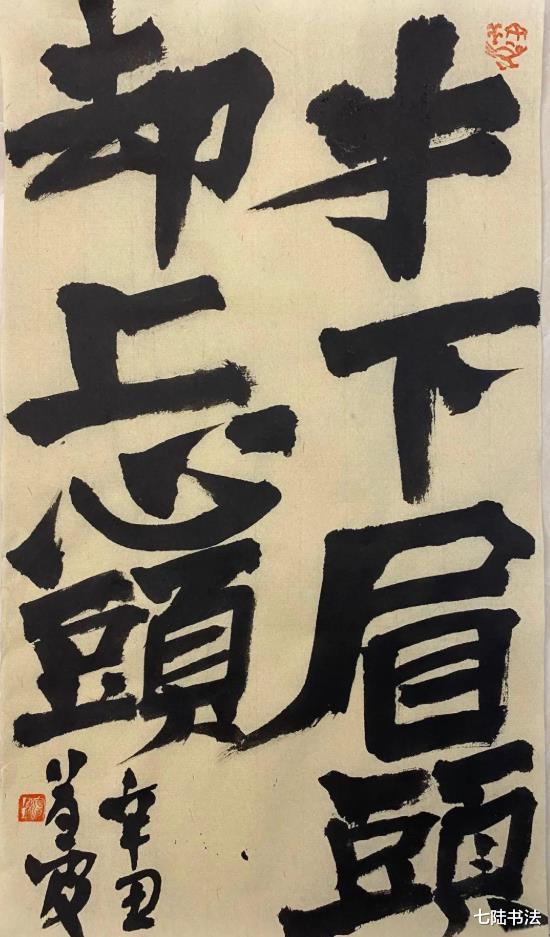 才下眉頭
却上心頭
辛丑
七陆书法